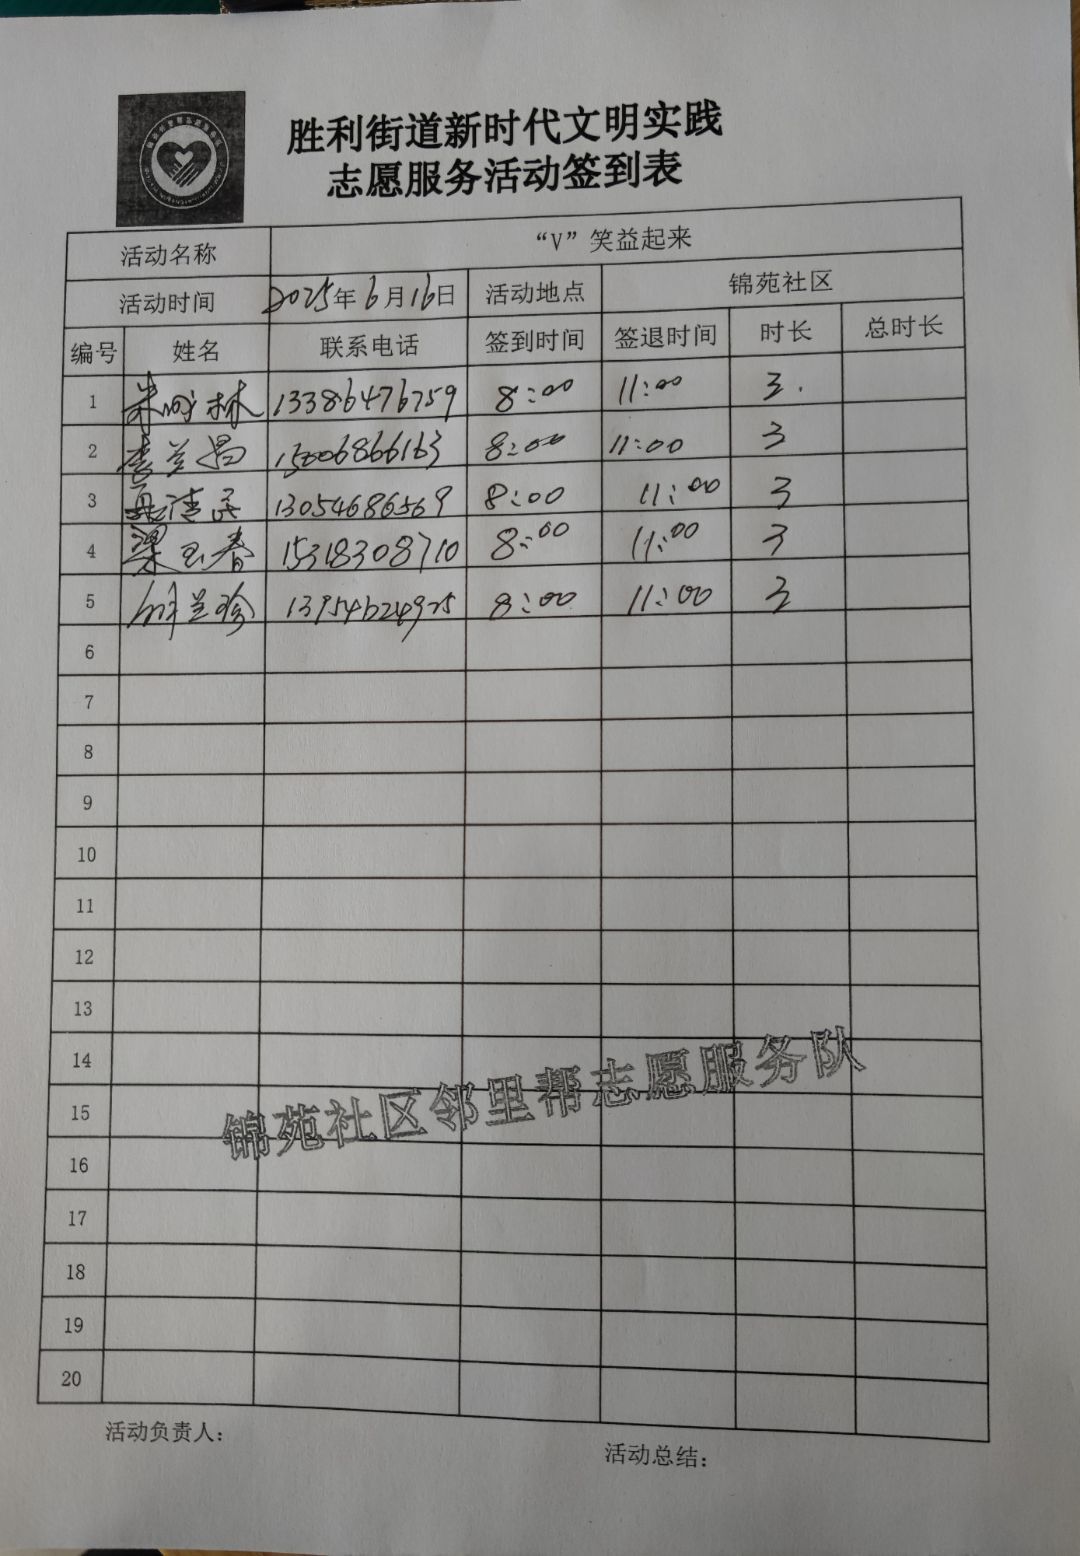 胜利街道新时代文明实践
志愿服务活动签到表
活动名称 “V”笑益起来
活动时间 2025年6月16日 活动地点 锦苑社区
编号 姓名 联系电话 签到时间 签退时间 时长 总时长
1 林 13386476759 8:00 11:00 3.
2 李兰 15006866163 8:00 11:00 3
3 清 13054686569 8:00 11:00 3
4 梁玉春 15318308710 8:00 11:00 3
5 兰珍 13954624925 8:00 11:00 3
6
7
8
9
10
11
12
13
14
15
锦苑社区邻里帮志愿服务队
16
17
18
19
20
活动负责人：
活动总结：